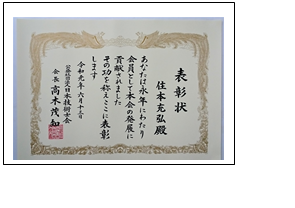 表彰状
住本充弘殿
あなたは永年にわたり
会員として本会の発展に
貢献されました
その功を称えここに表彰
します
令和元年六月十三日
公益社団法人日本技術士会
会長 高木茂知